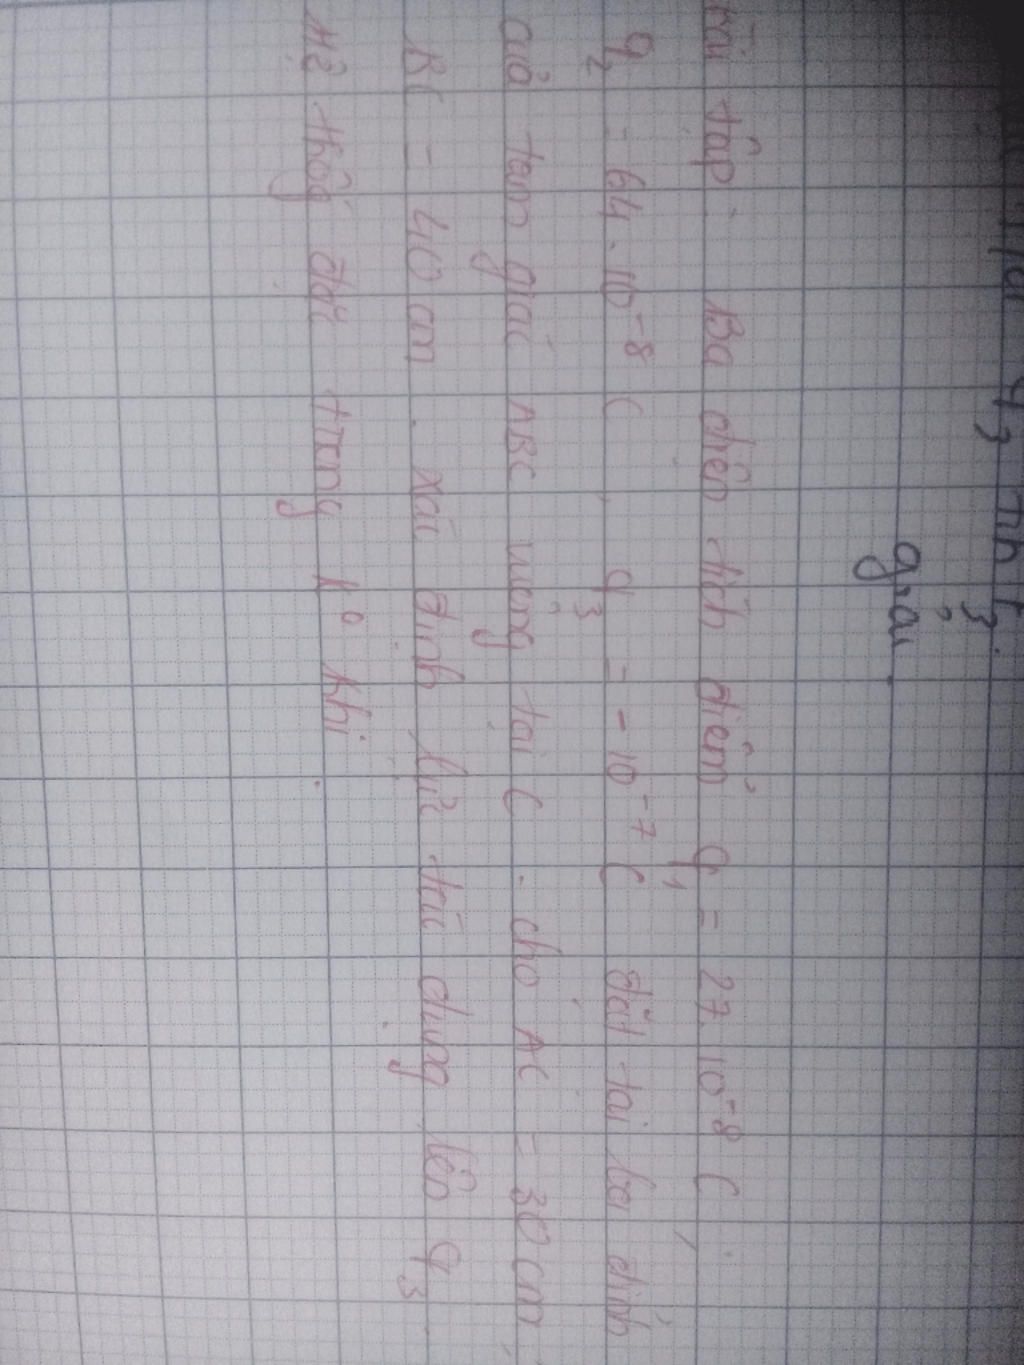 q3 tính F3.
giải
Bài tập: Ba điện tích điểm q1 = 27.10^-8 C,
q2 = 64.10^-8 C, q3 = -10^-7 C đặt tại ba đỉnh
của tam giác ABC vuông tại C. cho AC = 30 cm,
BC = 40 cm. xác định lực tác dụng lên q3.
Hệ thống đặt trong k° khí.